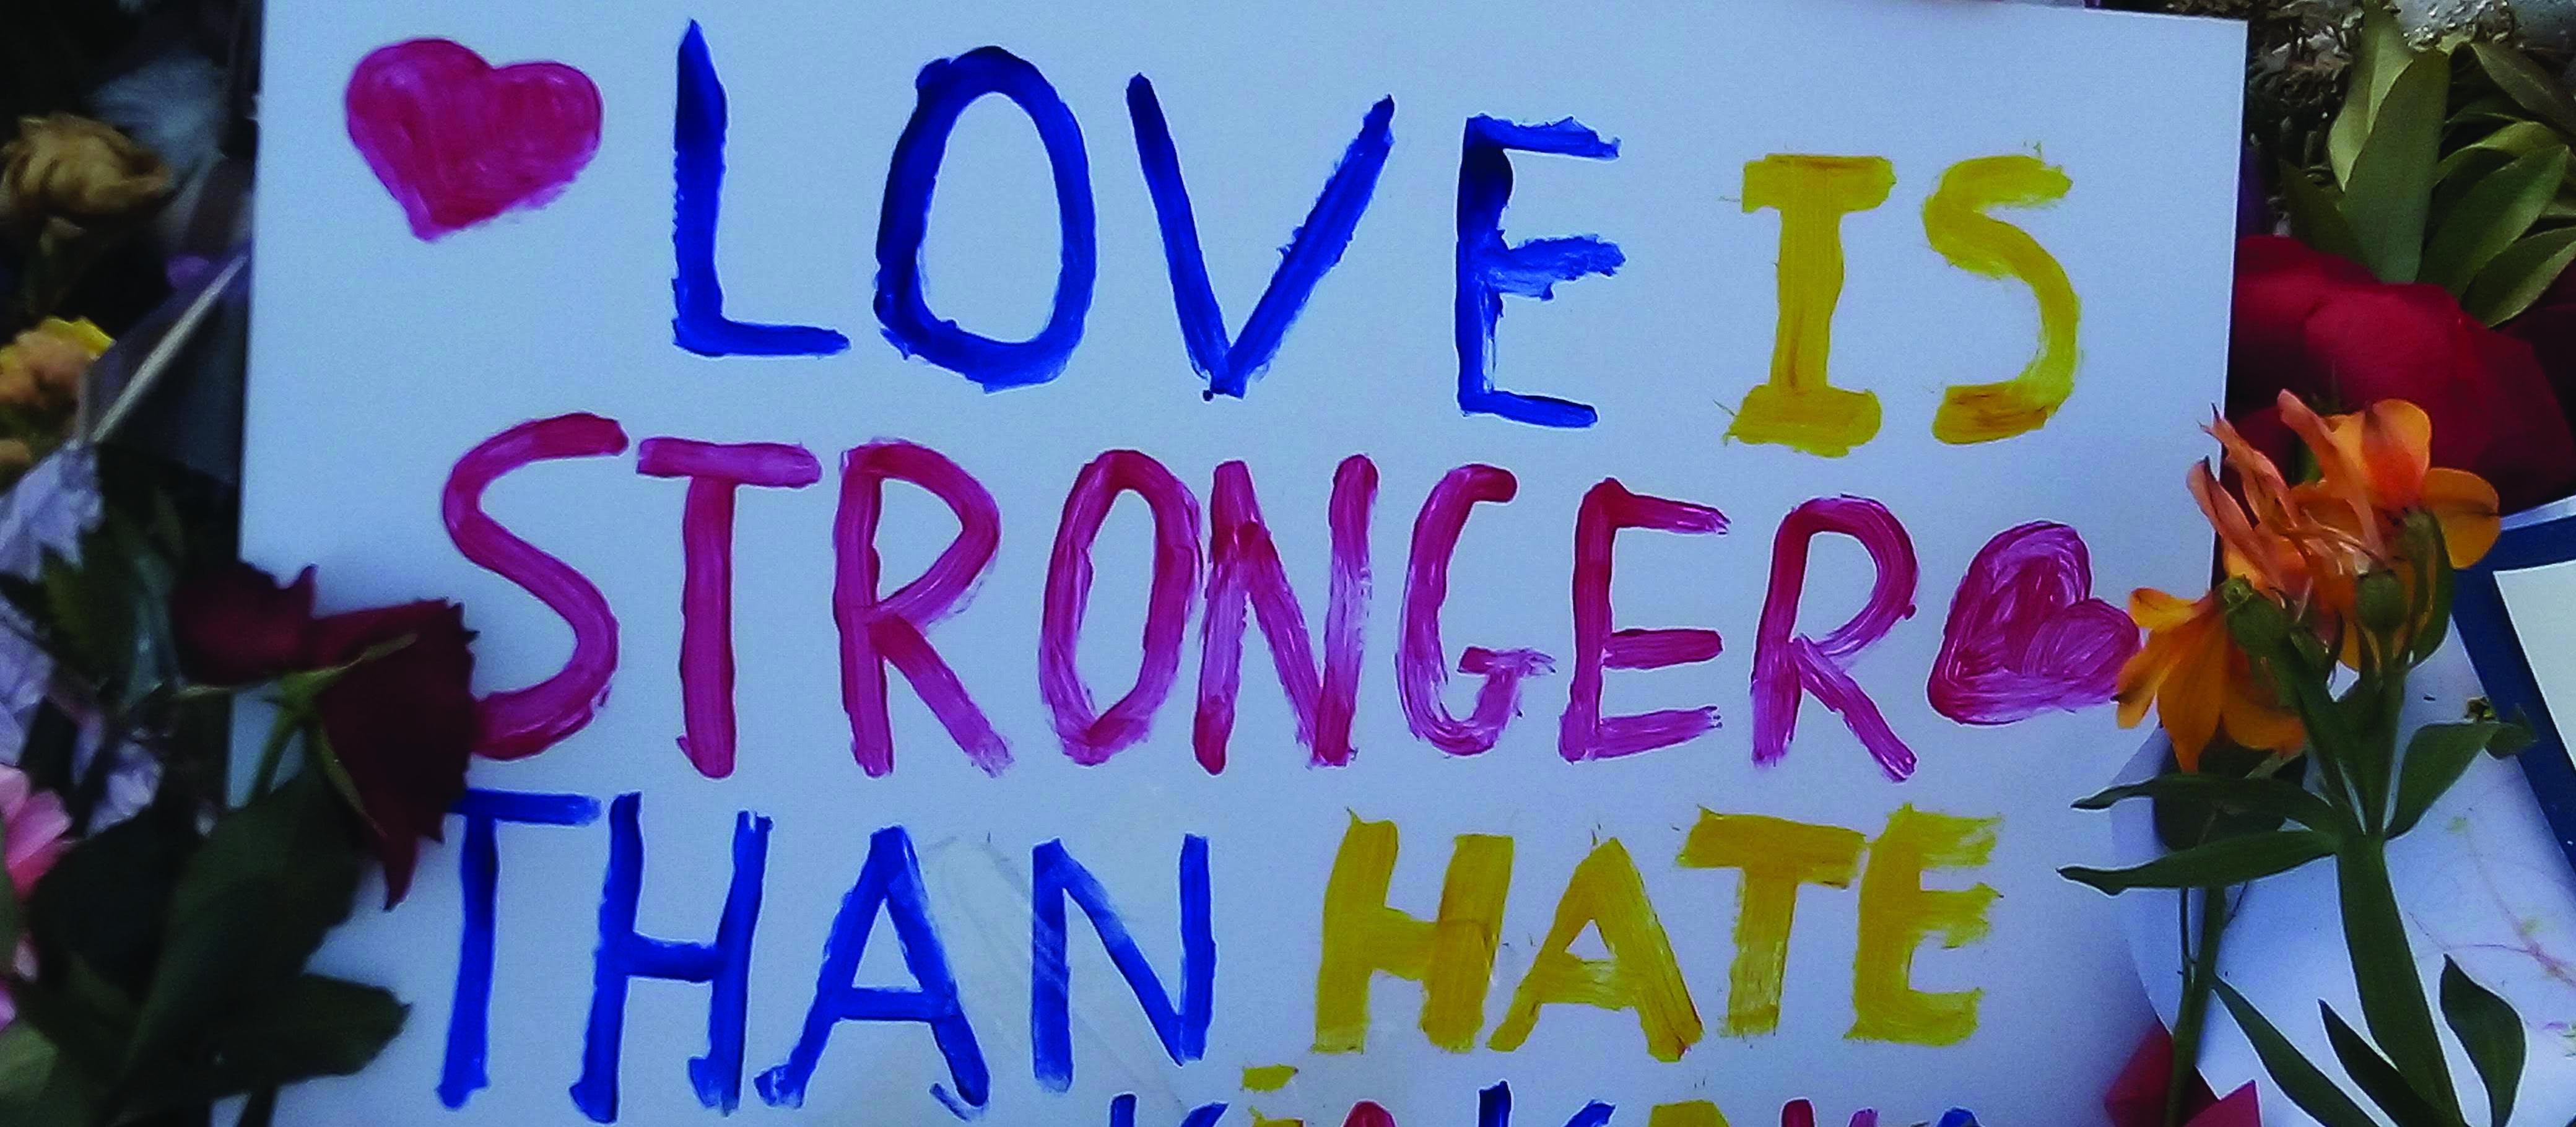 LOVE IS
STRONGER
THAN HATE